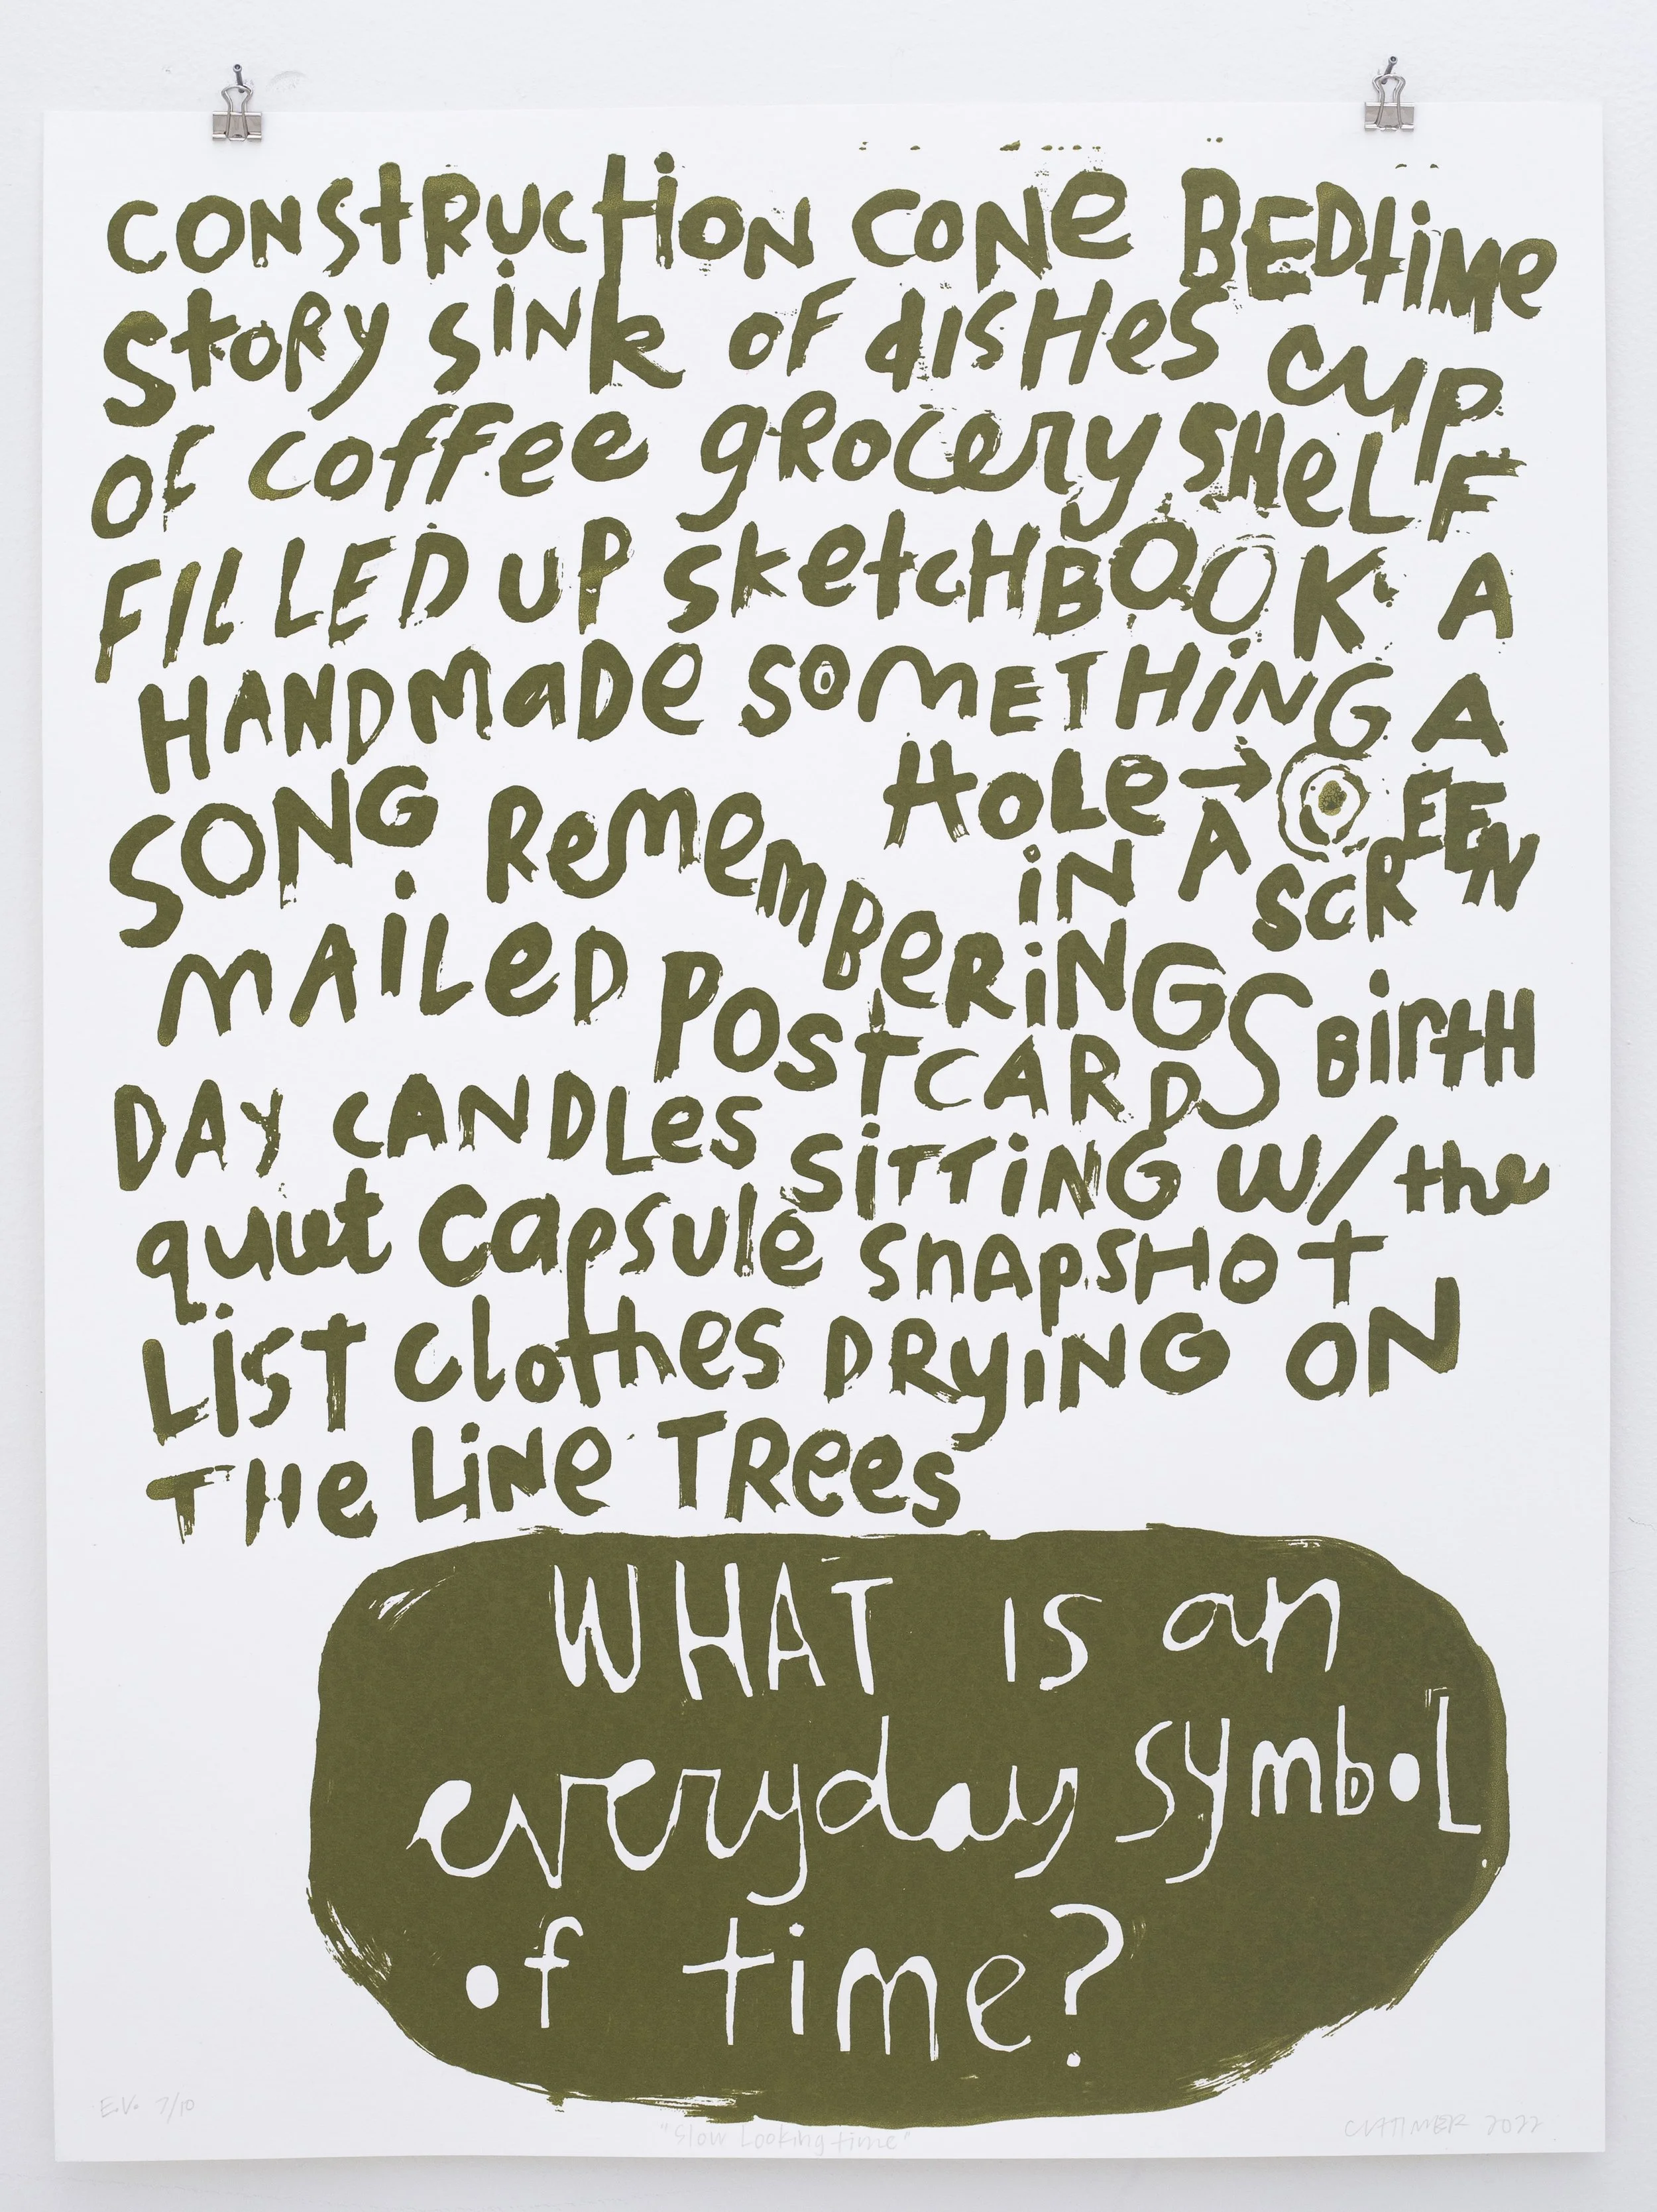 CONStRUCtiON CONe BEDtiMe
StoRy SiNk oF disHes cup
OF coffee gRocery SHeLF
FILLED UP SketcHBOOK A
HANDMaDe SOMETHiNG A
SONG HoLe →
iN A SCREEN
RememBeRiNGS
MAiLeD POSTCARDS BirtH
DAy CANDLes SiTTiNG W/ the
quiet Capsule SnApSHOt
LiST Clothes DRyiNG ON
THe LiNe TRees
WHAT IS an
everyday symboL
of time?
E.V. 7/10
"Slow Looking time"
2022